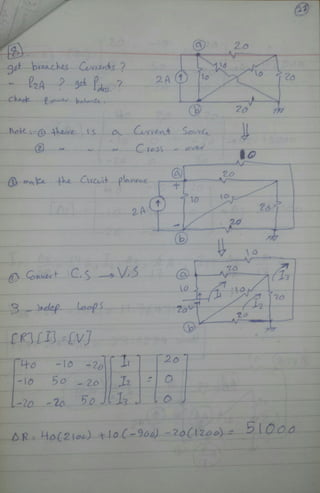 21
8
get branches Currents?
- P2A ? get Pdiss ?
check Power balance.
20
a
10
10
10
2A
20
b
20
Note:- ① there is a Current Source
② " " " Cross-over
10
① make the Circuit planner
a
20
+
2A
10
10
20
-
b
20
② Convert C.S → V.S
10
a
20
10
10
20
I1
I2
I3
20
b
20
3 - indep loops
[R][I]=[V]
[40 -10 -20] [I1] [20]
[-10 50 -20] [I2] = [0]
[-20 -20 50] [I3] [0]
ΔR = 40(2100) + 10(-900) - 20(1200) = 51000